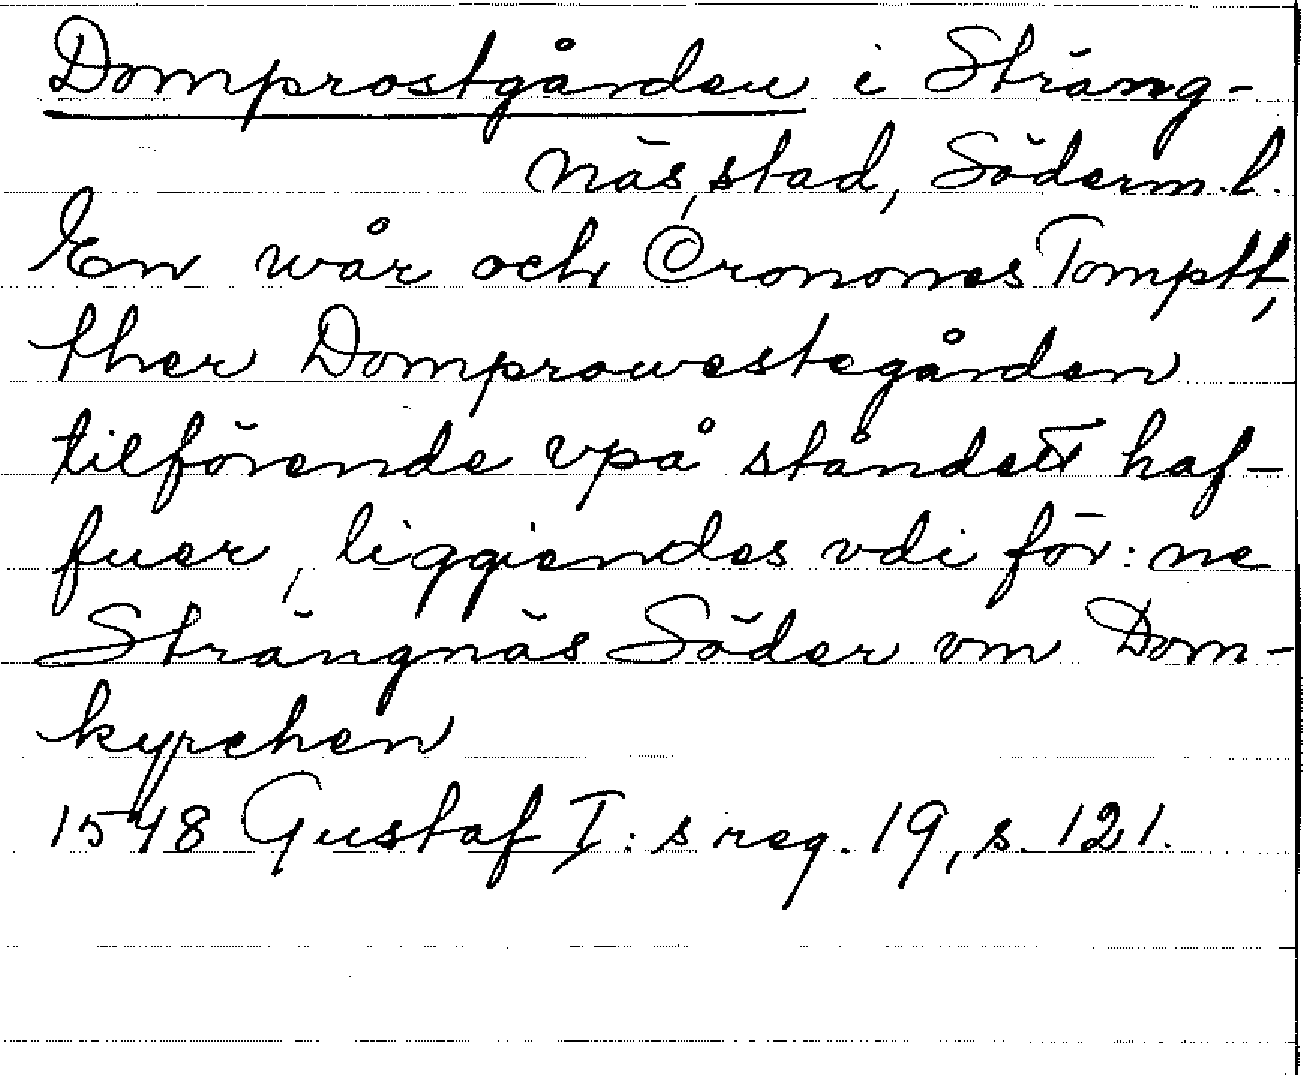 Domprostgården i Sträng-
näs, stad, Söderm. l.
En wår och Cronones Tomptt,
ther Domprowestegården
tilförende vpåståndett haf-
fuer, liggiendes vdi för:ne
Strängnäs Söder om Dom-
kyrchen
1548 Gustaf I:s reg. 19, s. 121.